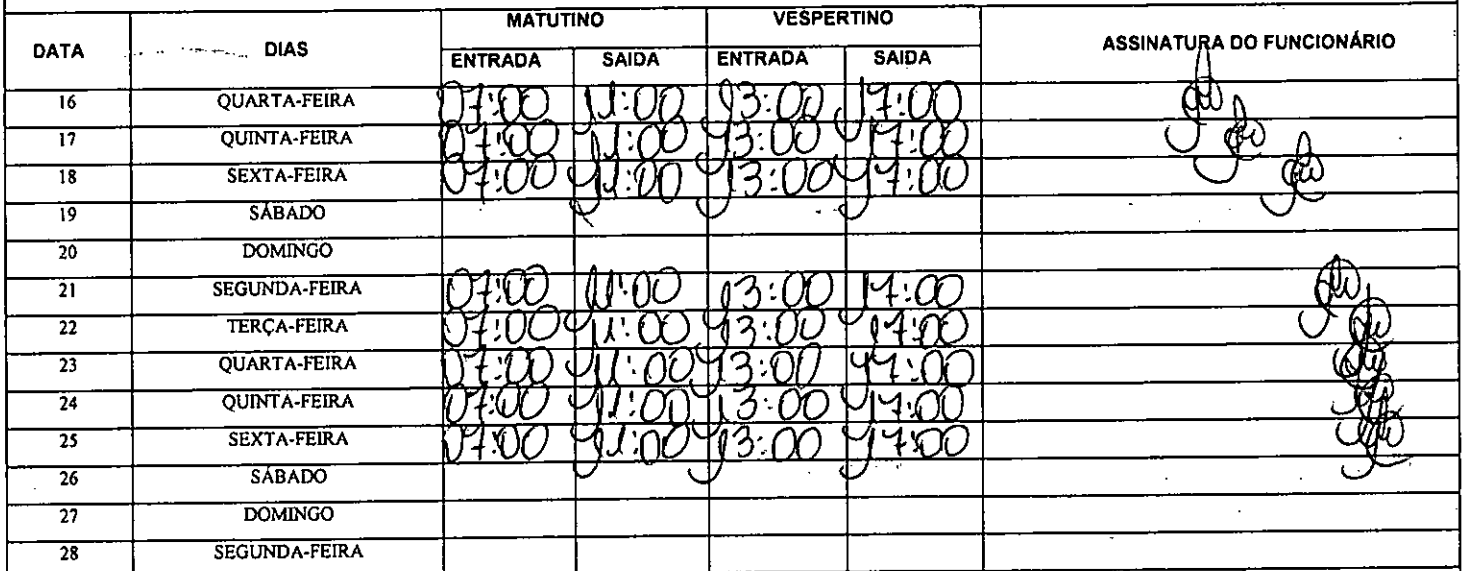 MATUTINO VESPERTINO
DATA DIAS ASSINATURA DO FUNCIONÁRIO
ENTRADA SAIDA ENTRADA SAIDA
16 QUARTA-FEIRA 07:00 11:00 13:00 17:00
17 QUINTA-FEIRA 07:00 11:00 13:00 17:00
18 SEXTA-FEIRA 07:00 11:00 13:00 17:00
19 SÁBADO
20 DOMINGO
21 SEGUNDA-FEIRA 07:00 11:00 13:00 17:00
22 TERÇA-FEIRA 07:00 11:00 13:00 17:00
23 QUARTA-FEIRA 07:00 11:00 13:00 17:00
24 QUINTA-FEIRA 07:00 11:00 13:00 17:00
25 SEXTA-FEIRA 07:00 11:00 13:00 17:00
26 SÁBADO
27 DOMINGO
28 SEGUNDA-FEIRA